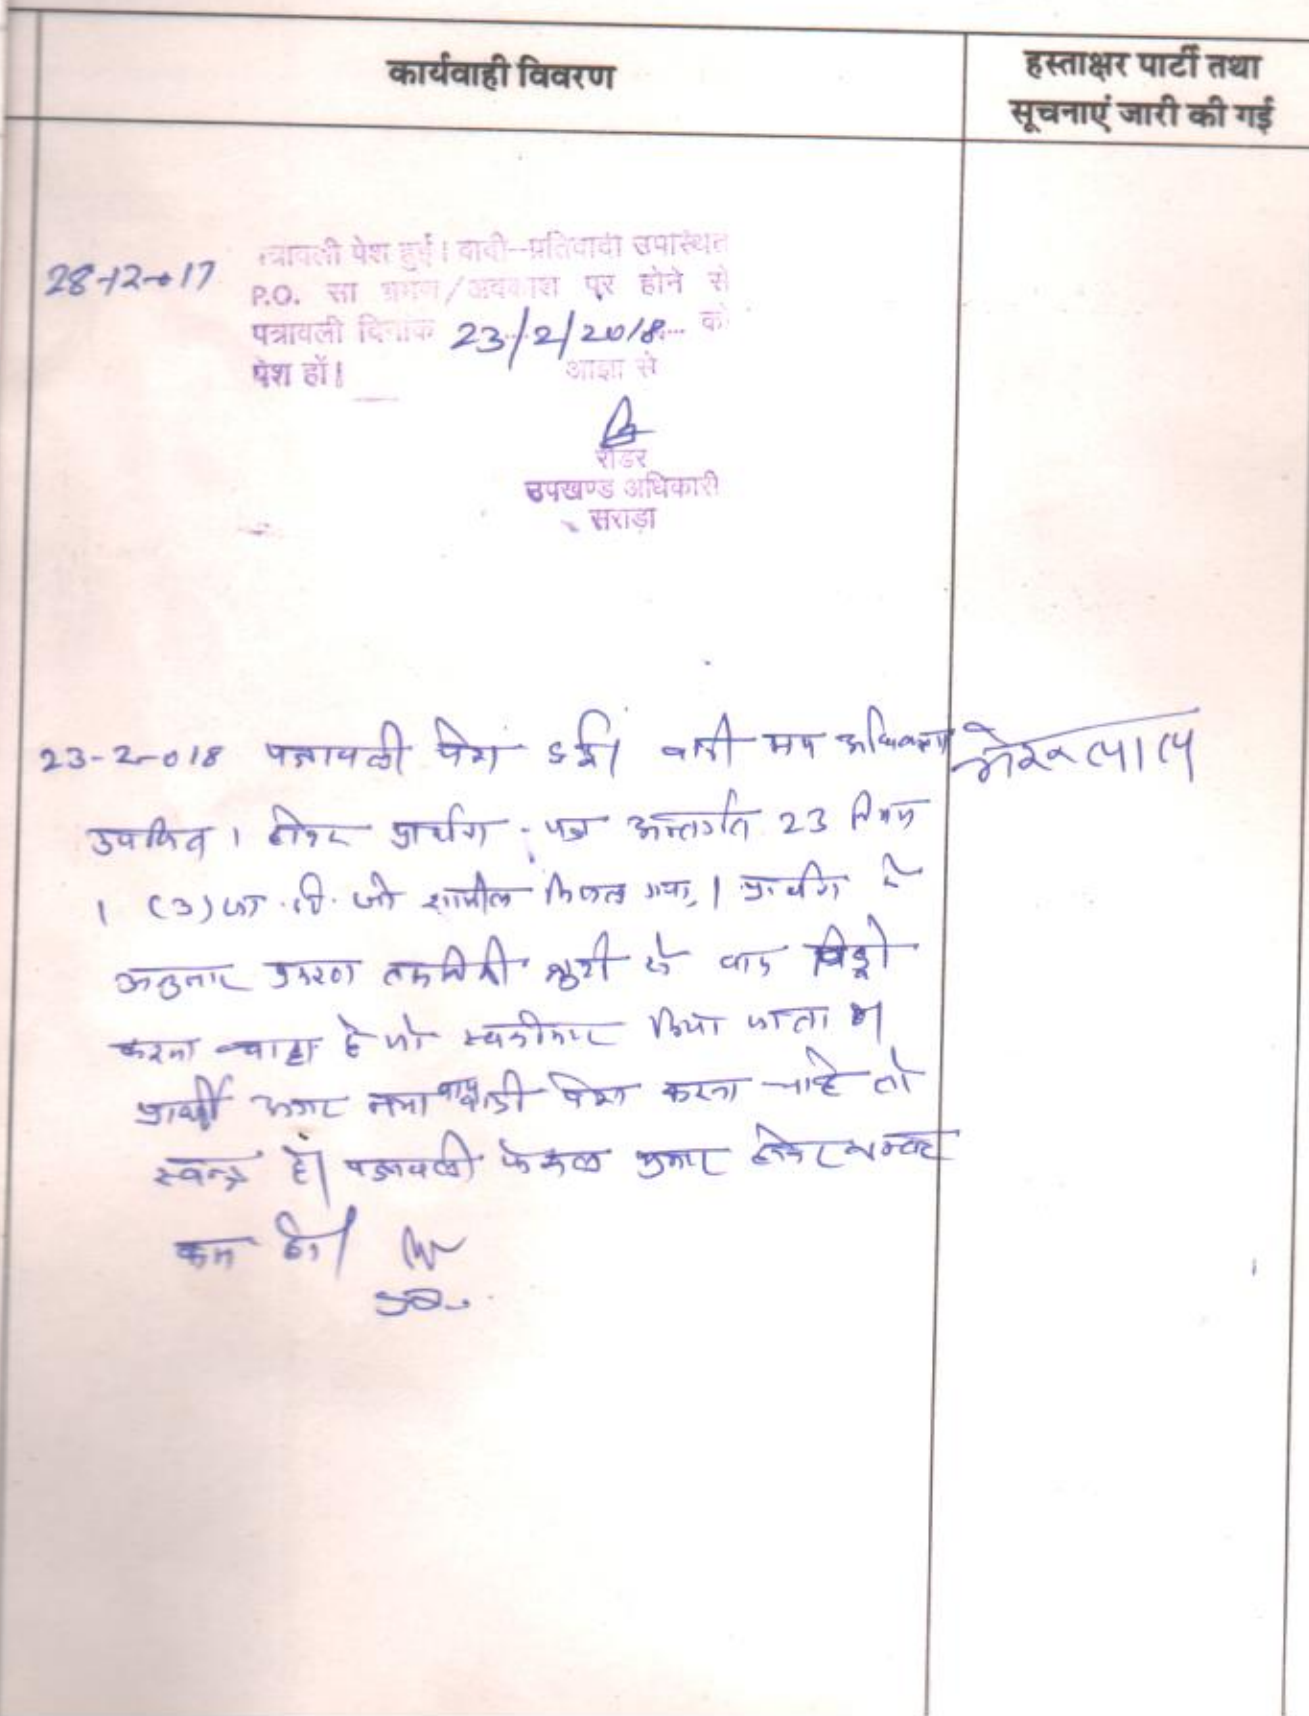 कार्यवाही विवरण
हस्ताक्षर पार्टी तथा
सूचनाएं जारी की गई
28-12-017
त्रावली पेश हुई। वादी-प्रतिवादी उपस्थित
P.O. सा भ्रमण/अवकाश पर होने से
पत्रावली दिनांक 23/2/2018 को
पेश हों।
आज्ञा से
रीडर
उपखण्ड अधिकारी
सराड़ा
23-2-018 पत्रावली पेश हुई। वादी मय अधिवक्ता
उपस्थित। होकर प्रार्थना-पत्र अन्तर्गत 23 नियम
1 (3) जो शामील किया गया। प्रार्थना के
अनुसार प्रकरण तकनिकी त्रुटी से वाद विड्रो
करना चाहा है जो स्वीकार किया जाता है।
प्रार्थी अगर नया पेश करना चाहे तो
स्वतन्त्र है। पत्रावली फैसल शुमार होकर नम्बर
कम हो।